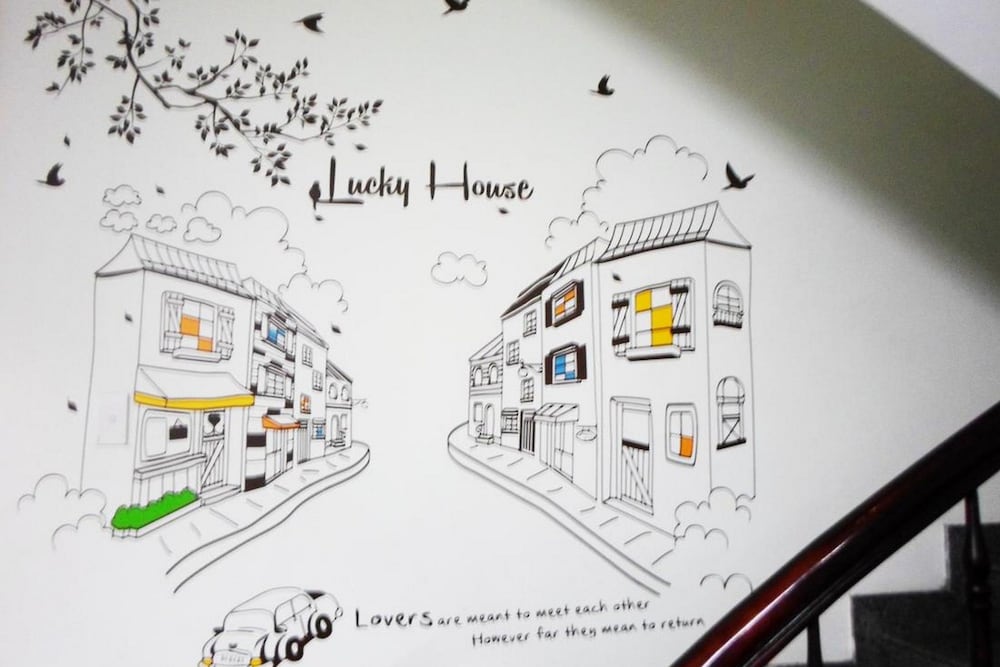 Lucky House
Lovers are meant to meet each other
However far they mean to return